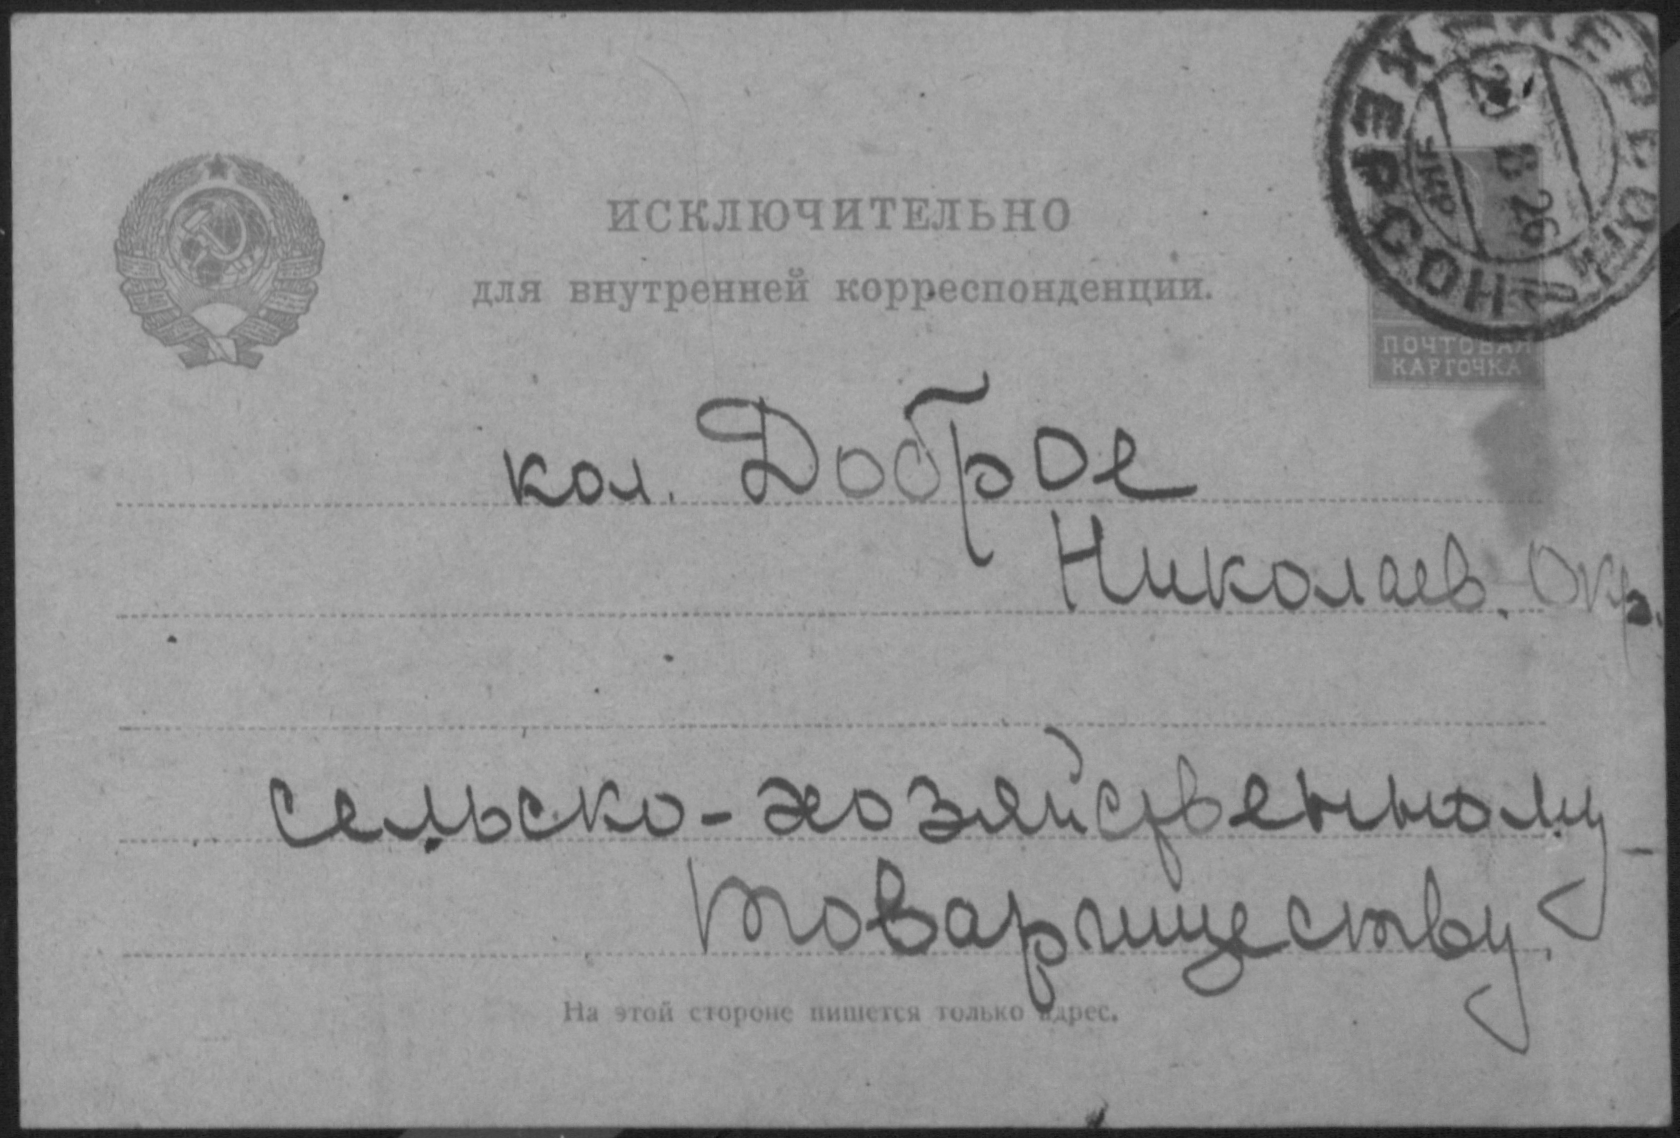 ИСКЛЮЧИТЕЛЬНО
для внутренней корреспонденции.
ХЕРСОН
8 26
ПОЧТОВАЯ
КАРТОЧКА
кол. Доброе
Николаев. Окр.
сельско-хозяйственному
товариществу.
На этой стороне пишется только адрес.